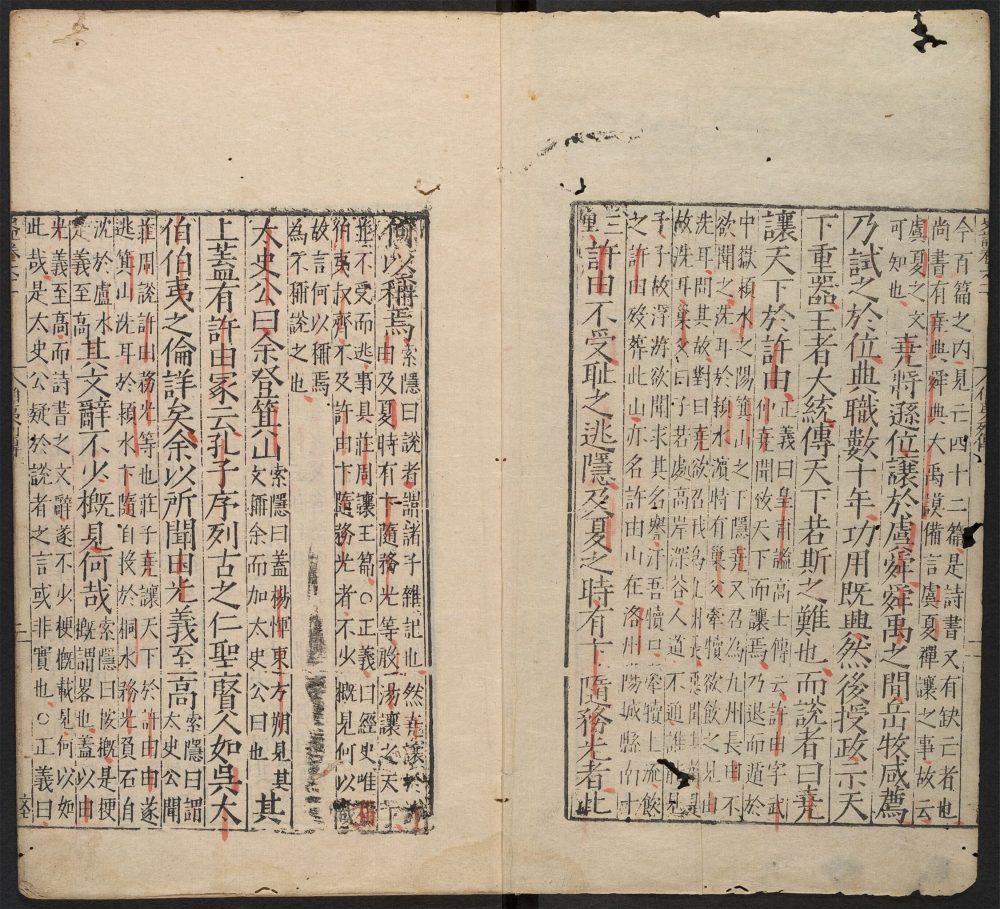 今百篇之内見亡四十二篇是詩書又有缺亡者也
尚書有堯典舜典大禹謨備言虞夏禪讓之事故云
虞夏之文
可知也
堯將遜位讓於虞舜舜禹之間岳牧咸薦
乃試之於位典職數十年功用既興然後授政示天
下重器王者大統傳天下若斯之難也而說者曰堯
讓天下於許由
正義曰皇甫謐高士傳云許由字武
仲堯聞致天下而讓焉乃退而遁於
中嶽潁水之陽箕山之下隱堯又召為九州長由不
欲聞之洗耳於潁水濱時有巢父牽犢欲飲之見由
洗耳問其故對曰堯欲召我為九州長惡聞其聲是
故洗耳巢父曰子若處高岸深谷人道不通誰能見
子子故浮游欲聞求其名譽汙吾犢口牽犢上流飲
之許由歿葬此山亦名許由山在洛州陽城縣南十
三里
許由不受恥之逃隱及夏之時有卞隨務光者此
何以稱焉
索隱曰說者謂諸子雜記也然堯讓於
由及夏時有卞隨務光等殷湯讓之天下
並不受而逃事具莊周讓王篇○正義曰經史唯
伯夷叔齊不及許由卞隨務光者不少概見何以
故言何以稱焉
為不稱說之也
太史公曰余登箕山
索隱曰蓋楊惲東方朔見其
文稱余而加太史公曰也
其
上蓋有許由冢云孔子序列古之仁聖賢人如吳太
伯伯夷之倫詳矣余以所聞由光義至高
索隱曰謂
太史公聞
莊周說許由務光等也莊子堯讓天下於許由由遂
逃箕山洗耳於潁水卞隨自投於桐水務光負石自
沈於盧水
是義至高
其文辭不少概見何哉
索隱曰按概是梗
概謂畧也蓋以由
光義至高而詩書之文辭遂不少梗概載見何以如
此哉是太史公疑於說者之言或非實也○正義曰